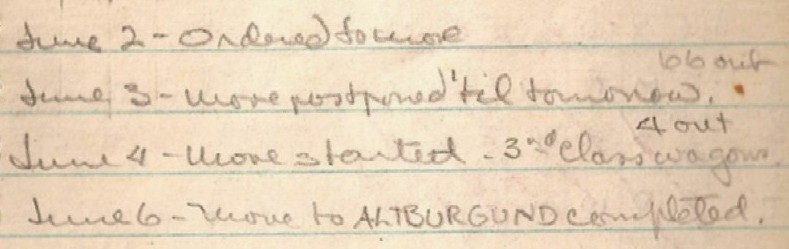 June 2 - Ordered to move
66 out
June 3 - Move postponed 'til tomorrow.
4 out
June 4 - Move started - 3rd Class wagons.
June 6 - Move to ALTBURGUND completed.